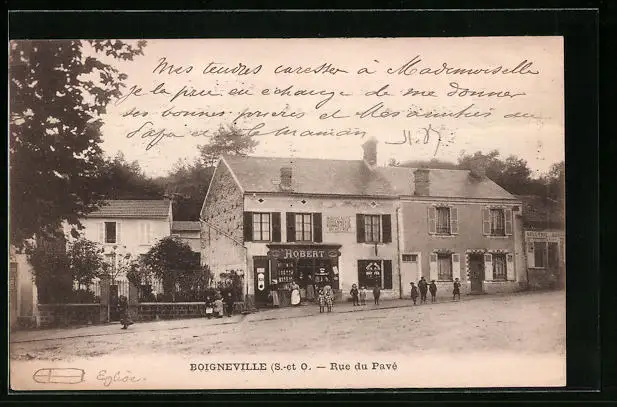 Mes tendres caresses à Mademoiselle
je la prie en échange de me donner
ses bonnes prières et Mes amitiés au
Papa et la Maman
HOBERT
BOIGNEVILLE (S.-et O. — Rue du Pavé
Eglise